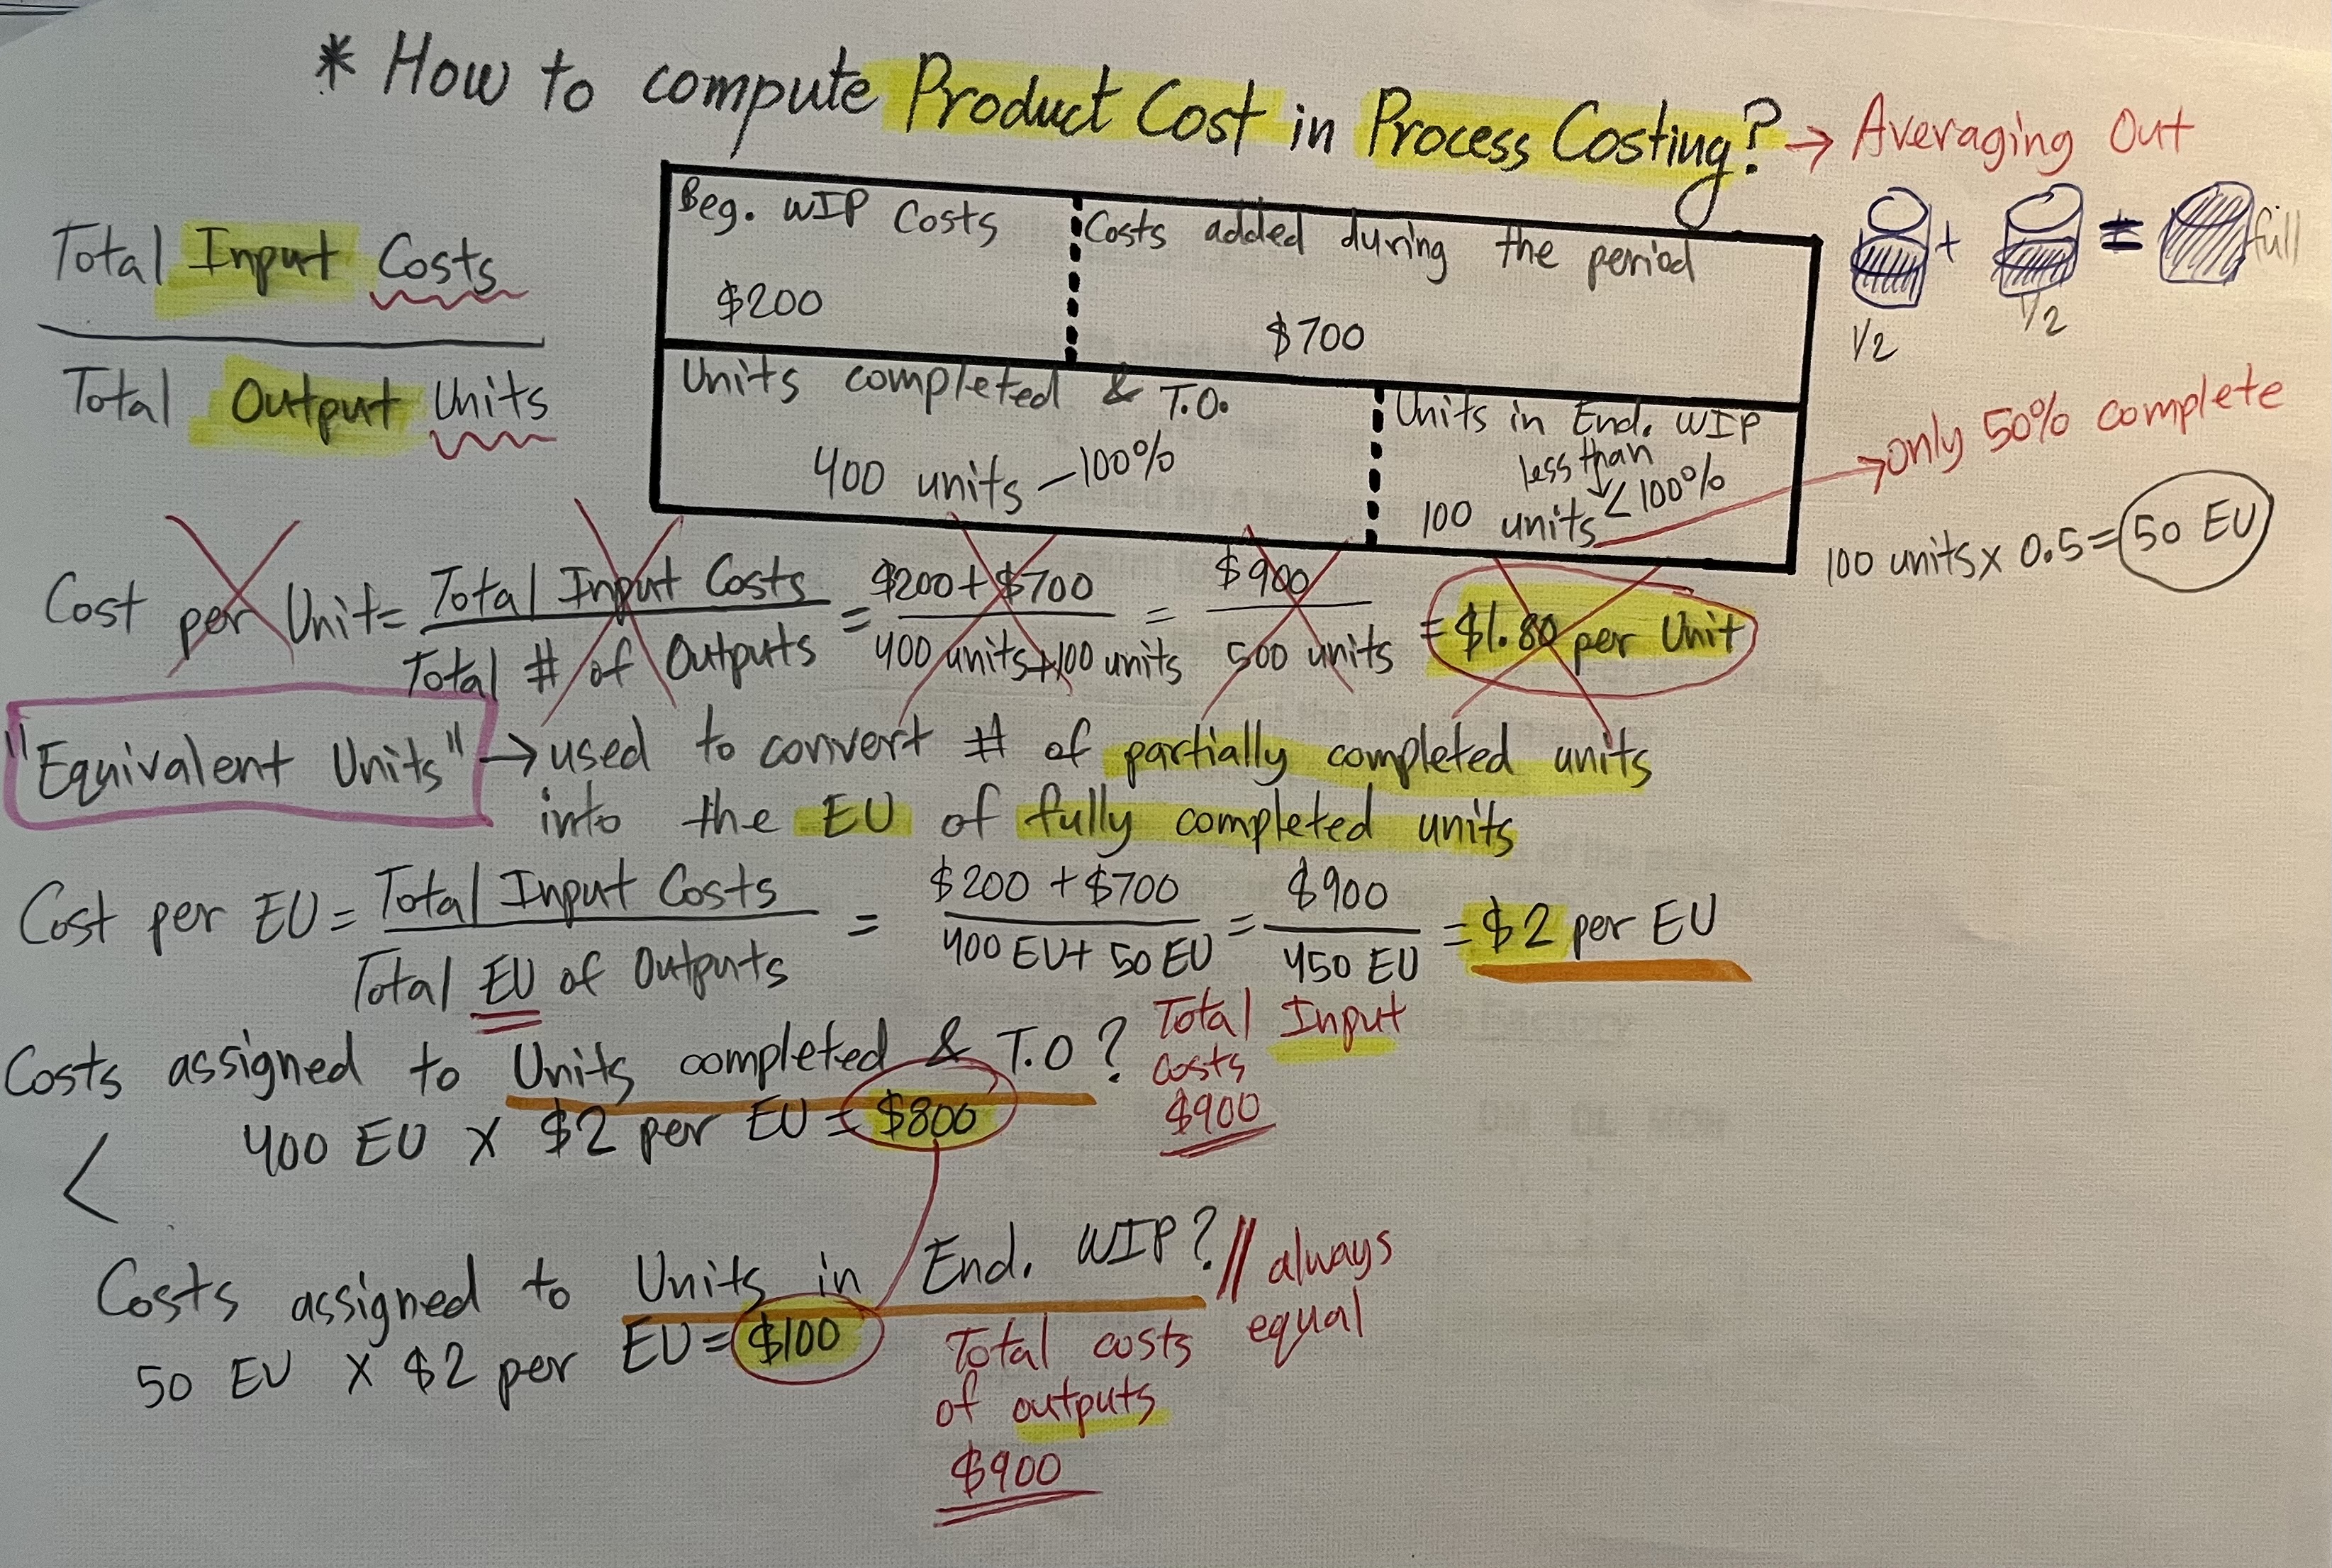 * How to compute Product Cost in Process Costing? → Averaging Out
Total Input Costs
Total Output Units
Beg. WIP Costs
$200
Costs added during the period
$700
Units completed & T.O.
400 units - 100%
Units in End. WIP
less than
100 units < 100%
1/2 + 1/2 = full
→ only 50% complete
100 units x 0.5 = 50 EU
Cost per Unit = Total Input Costs / Total # of Outputs = $200 + $700 / 400 units + 100 units = $900 / 500 units = $1.80 per Unit
"Equivalent Units" → used to convert # of partially completed units
into the EU of fully completed units
Cost per EU = Total Input Costs / Total EU of Outputs = $200 + $700 / 400 EU + 50 EU = $900 / 450 EU = $2 per EU
Costs assigned to Units completed & T.O?
400 EU x $2 per EU = $800
Total Input
costs
$900
Costs assigned to Units in End. WIP?
50 EU x $2 per EU = $100
// always
equal
Total costs
of outputs
$900